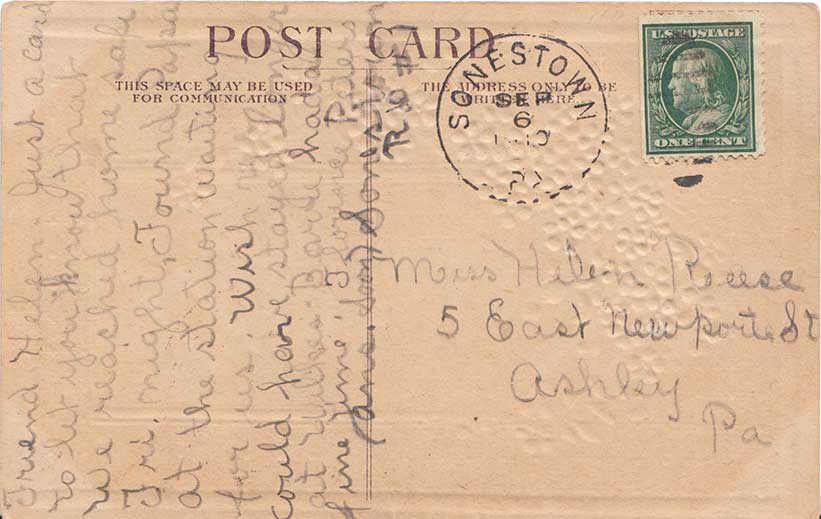 POST CARD
THIS SPACE MAY BE USED
FOR COMMUNICATION
THE ADDRESS ONLY TO BE
WRITTEN HERE
U.S. POSTAGE
ONE CENT
SONESTOWN
SEP
6
1910
Miss Helen Reese
5 East Newport St
Ashley
Pa
Friend Helen. Just a card
to let you know that
we reached home safe
Fri. night, Found Papa
at the station waiting
for us. Wish
could have stayed longer
at Wilkes-Barre had a
fine time. Florance Peters
(ans. soon) Sonestown